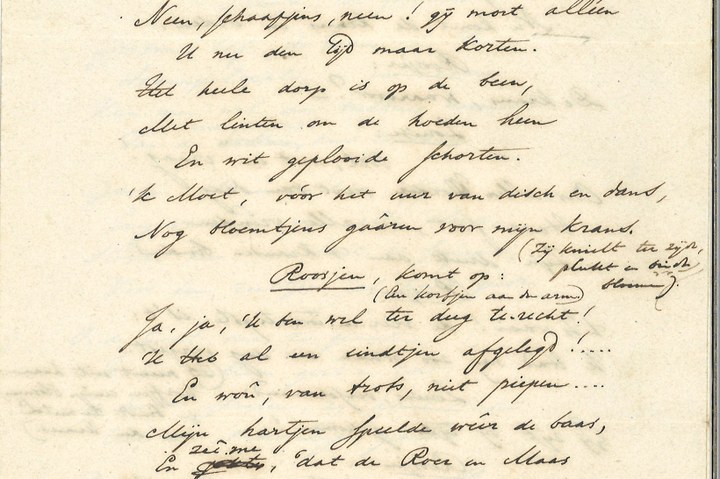 Neen, schaapjens, neen! gij moet alléén
U nu den tijd maar korten.
Het heele dorp is op de been,
Met linten om de hoeden heen
En wit geplooide schorten.
'k Moet, vóór het uur van disch en dans,
Nog bloemtjens gaâren voor mijn krans.
(Zij knielt ter zijde,
plukt en bindt
bloemen).
Roosjen, komt op:
(Een korfjen aan den arm)
Ja, ja, 'k ben wel ter deeg te-recht!
'k Heb al een eindtjen afgelegd!....
En woû, van trots, niet piepen....
Mijn hartjen speelde wéér de baas,
zeî me
En , dat de Roer en Maas